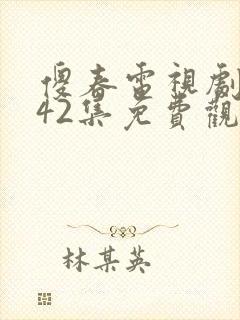 傻春電視劇
42集免費觀
林某英